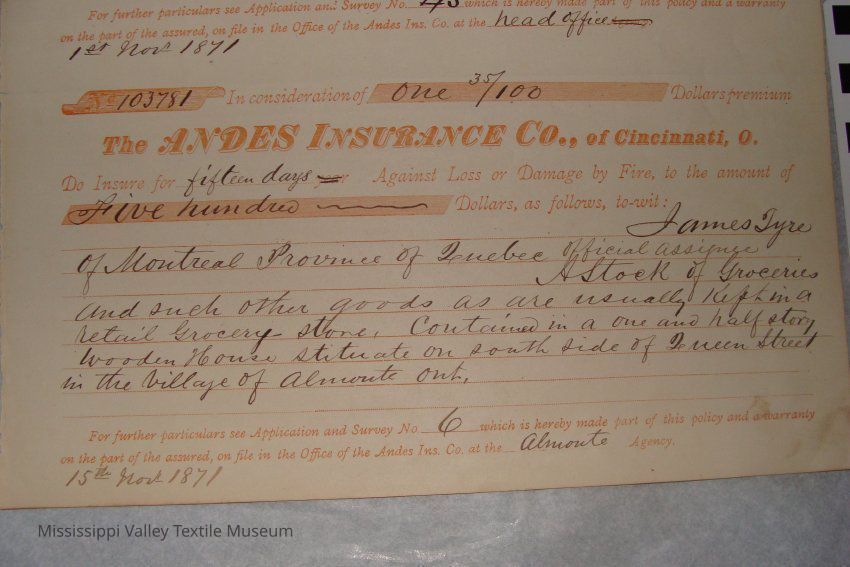 For further particulars see Application and Survey No. 43 which is hereby made part of this policy and a warranty
on the part of the assured, on file in the Office of the Andes Ins. Co. at the head office
1st Nov 1871
No 103781 In consideration of One 35/100 Dollars premium
The ANDES INSURANCE CO., of Cincinnati, O.
Do Insure for fifteen days year Against Loss or Damage by Fire, to the amount of
Five hundred Dollars, as follows, to-wit:
James Tyre
of Montreal Province of Quebec official assignee
A Stock of Groceries
and such other goods as are usually Kept in a
retail Grocery store, Contained in a one and half story
Wooden House stituate on south side of Queen Street
in the Village of Almonte Ont.
For further particulars see Application and Survey No. 6 which is hereby made part of this policy and a warranty
on the part of the assured, on file in the Office of the Andes Ins. Co. at the Almonte Agency.
15th Nov 1871
Mississippi Valley Textile Museum